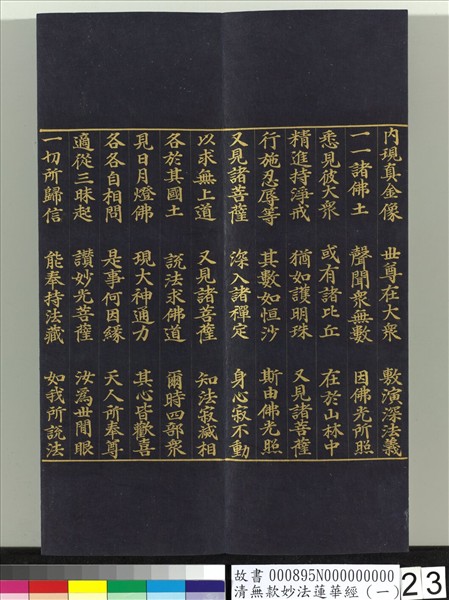 內現真金像　世尊在大衆　敷演深法義
一一諸佛土　聲聞衆無數　因佛光所照
悉見彼大衆　或有諸比丘　在於山林中
精進持淨戒　猶如護明珠　又見諸菩薩
行施忍辱等　其數如恒沙　斯由佛光照
又見諸菩薩　深入諸禪定　身心寂不動
以求無上道　又見諸菩薩　知法寂滅相
各於其國土　說法求佛道　爾時四部衆
見日月燈佛　現大神通力　其心皆歡喜
各各自相問　是事何因緣　天人所奉尊
適從三昧起　讚妙光菩薩　汝為世間眼
一切所歸信　能奉持法藏　如我所說法
故書 000895N000000000
清無款妙法蓮華經（一）
23